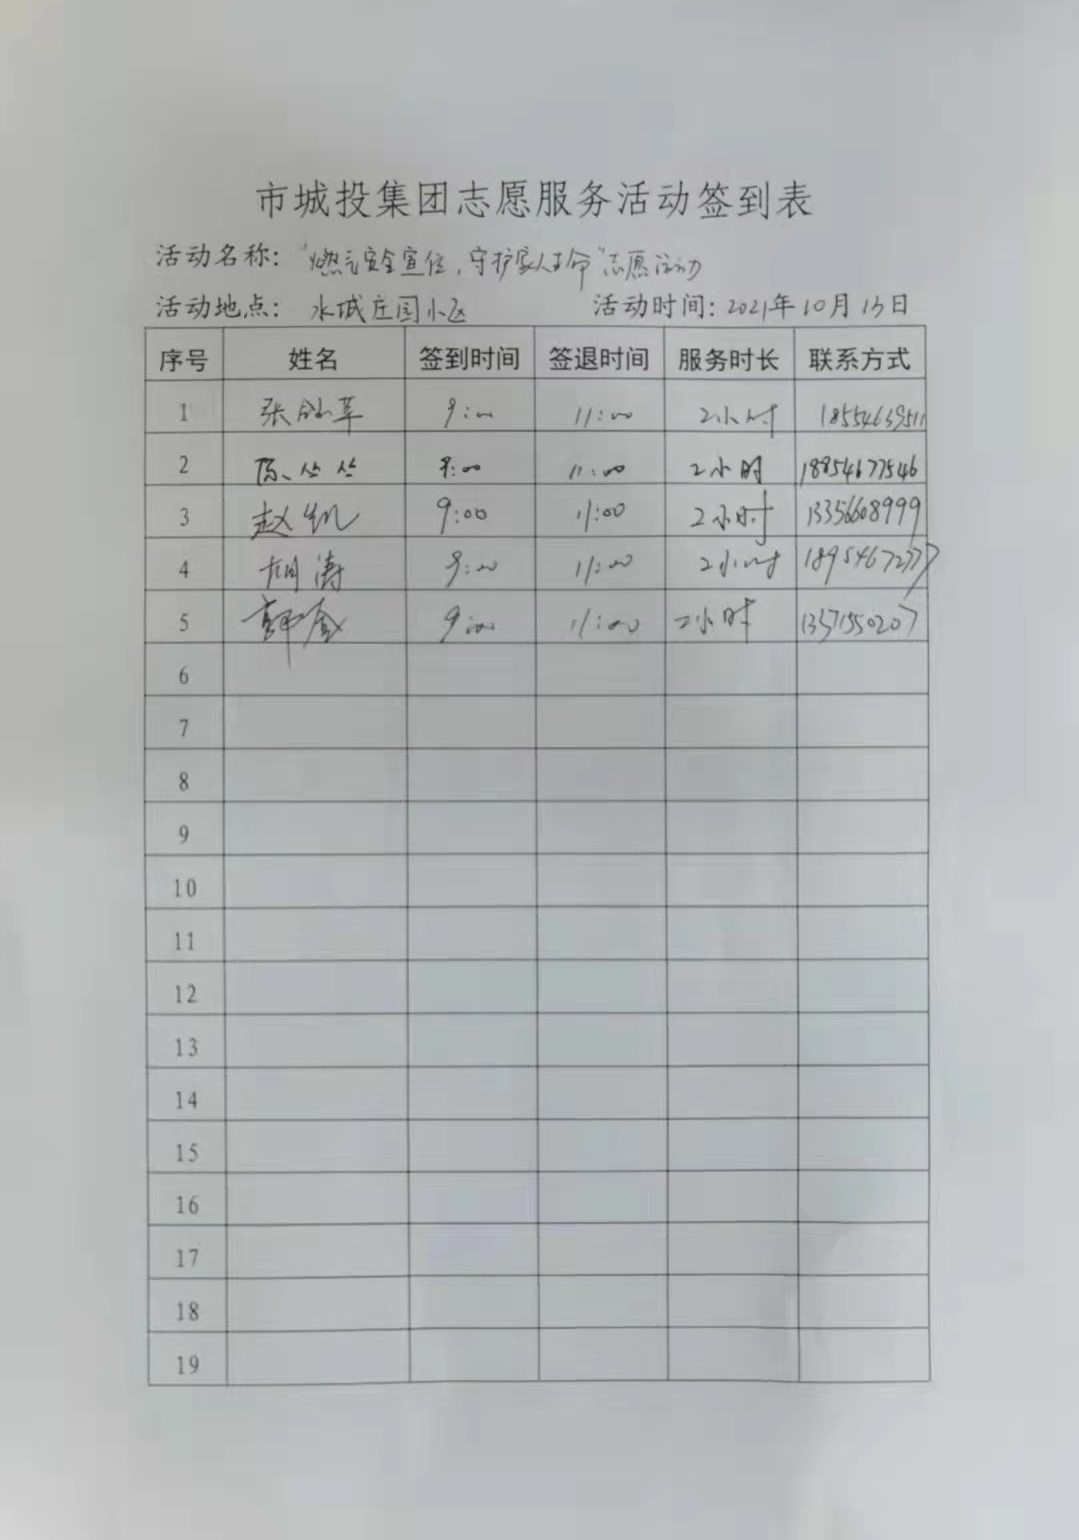 市城投集团志愿服务活动签到表
活动名称："燃气安全宣传，守护家人生命"志愿活动
活动地点：水城庄园小区 活动时间：2021年10月13日
序号 姓名 签到时间 签退时间 服务时长 联系方式
1 张 9:00 11:00 2小时 18554639511
2 陈丛丛 9:00 11:00 2小时 18854677546
3 赵凯 9:00 11:00 2小时 13356608999
4 胡涛 9:00 11:00 2小时
5 9:00 11:00 2小时
6
7
8
9
10
11
12
13
14
15
16
17
18
19